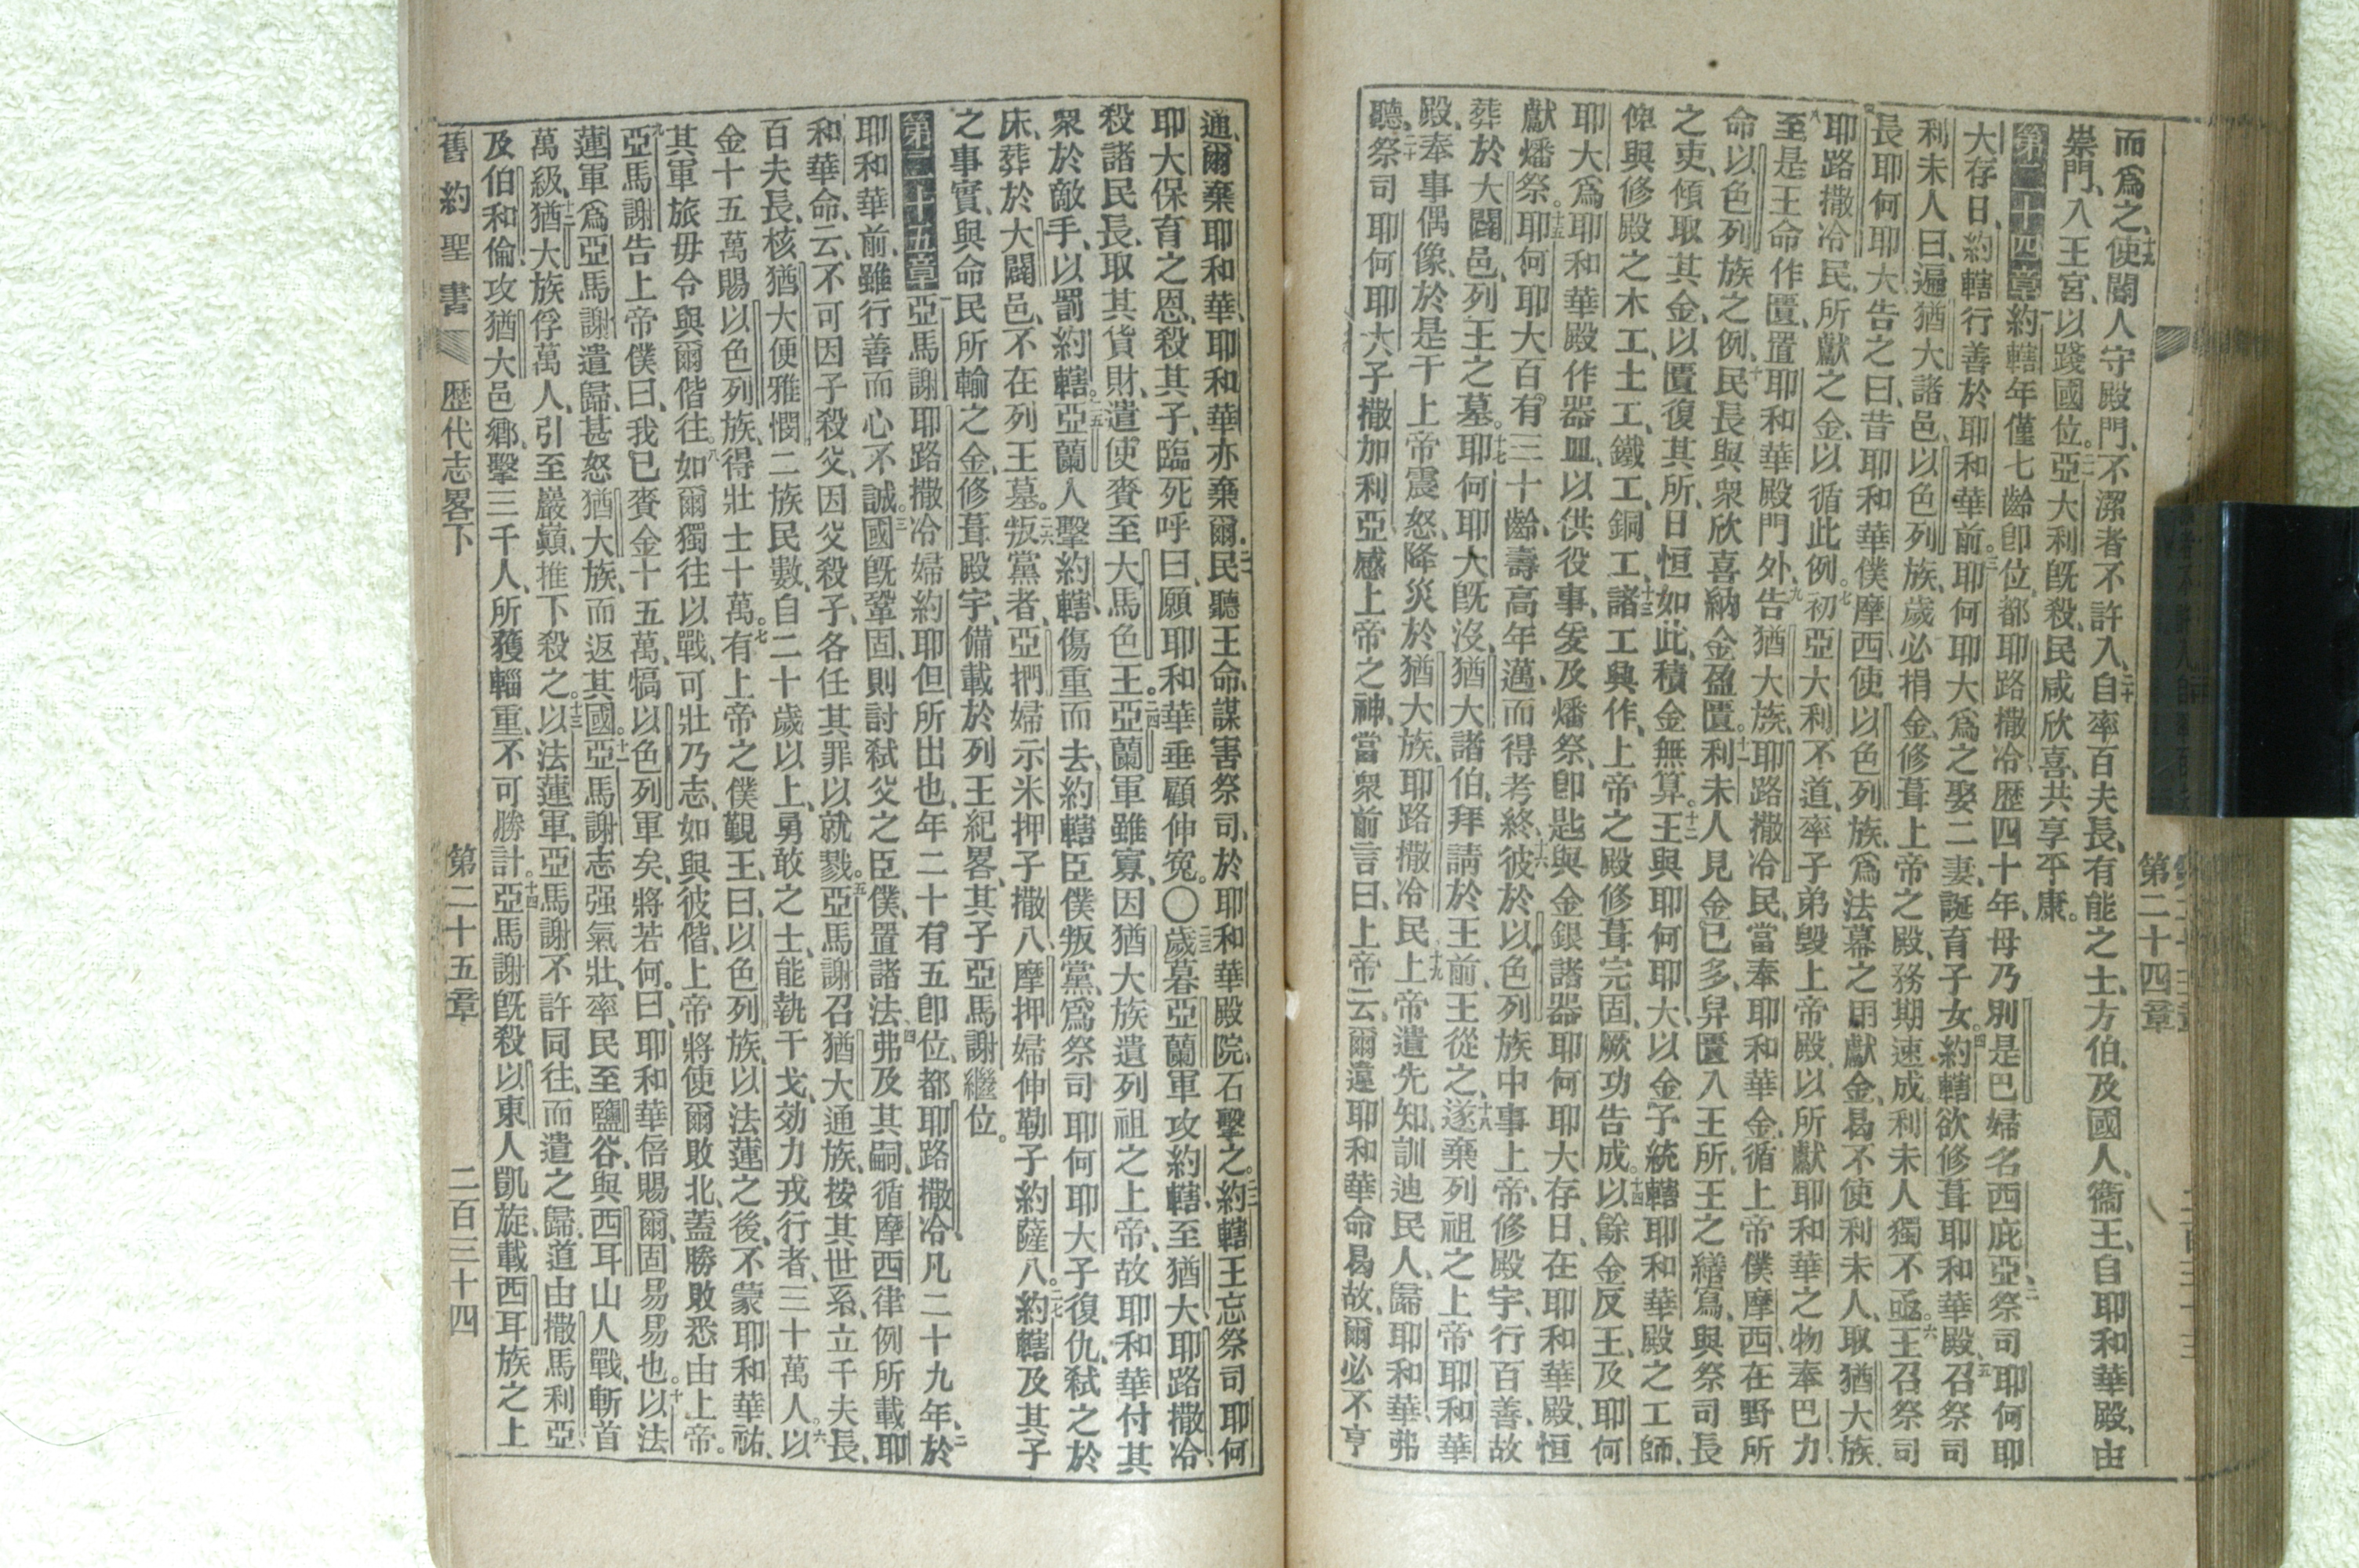 而爲之、十九使閽人守殿門、不潔者不許入、二十自率百夫長、有能之士、方伯、及國人、衞王、自耶和華殿、由
崇門、入王宮、以踐國位。二一亞大利旣殺、民咸欣喜、共享平康。
第二十四章一約轄年僅七齡卽位、都耶路撒冷、歷四十年、母乃別是巴婦名西庇亞、二祭司耶何耶
大存日、約轄行善於耶和華前。三耶何耶大爲之娶二妻、誕育子女。四約轄欲修葺耶和華殿、五召祭司
利未人曰、遍猶大諸邑、以色列族、歲必捐金、修葺上帝之殿、務期速成、利未人獨不亟。六王召祭司
長耶何耶大告之曰、昔耶和華僕摩西使以色列族、爲法幕之用獻金、曷不使利未人、取猶大族、
耶路撒冷民、所獻之金、以循此例。七初亞大利不道、率子弟毁上帝殿、以所獻耶和華之物奉巴力、
八至是王命作匱、置耶和華殿門外、九告猶大族、耶路撒冷民、當奉耶和華金、循上帝僕摩西在野所
命以色列族之例、十民長與衆欣喜納金盈匱。十一利未人見金已多、舁匱入王所、王之繕寫、與祭司長
之吏、傾取其金、以匱復其所、日恒如此、積金無算。十二王與耶何耶大以金予統轄耶和華殿之工師、
俾與修殿之木工、土工、鐵工、銅工、十三諸工興作、上帝之殿修葺完固、厥功告成。十四以餘金反王、及耶何
耶大、爲耶和華殿作器皿、以供役事、爰及燔祭、卽匙與金銀諸器耶何耶大存日、在耶和華殿、恒
獻燔祭。十五耶何耶大百有三十齡、壽高年邁、而得考終、十六彼於以色列族中事上帝、修殿宇、行百善、故
葬於大闢邑、列王之墓。十七耶何耶大旣沒、猶大諸伯、拜請於王前、王從之、十八遂棄列祖之上帝耶和華
殿、奉事偶像、於是干上帝震怒、降災於猶大族、耶路撒冷民、十九上帝遣先知、訓迪民人、歸耶和華、弗
聽、二十祭司耶何耶大子撒加利亞感上帝之神、當衆前言曰、上帝云、爾違耶和華命曷故、爾必不亨
通、爾棄耶和華、耶和華亦棄爾、二一民聽王命、謀害祭司、於耶和華殿院、石擊之。二二約轄王忘祭司耶何
耶大保育之恩、殺其子、臨死呼曰、願耶和華垂顧伸寃。〇二三歲暮亞蘭軍攻約轄、至猶大耶路撒冷、
殺諸民長、取其貨財、遣使賫至大馬色王。二四亞蘭軍雖寡、因猶大族遺列祖之上帝、故耶和華付其
衆於敵手、以罰約轄。二五亞蘭人擊約轄、傷重而去、約轄臣僕叛黨、爲祭司耶何耶大子復仇、弑之於
床、葬於大闢邑、不在列王墓。二六叛黨者、亞捫婦示米押子撒八摩押婦伸勒子約薩八。二七約轄及其子
之事實、與命民所輸之金、修葺殿宇、備載於列王紀畧、其子亞馬謝繼位。
第二十五章一亞馬謝耶路撒冷婦約耶但所出也、年二十有五卽位、都耶路撒冷凡二十九年、二於
耶和華前、雖行善而心不誠。三國旣鞏固、則討弑父之臣僕、置諸法、四弗及其嗣、循摩西律例所載耶
和華命、云、不可因子殺父、因父殺子、各任其罪以就戮。五亞馬謝召猶大通族、按其世系、立千夫長、
百夫長、核猶大便雅憫二族民數、自二十歲以上、勇敢之士、能執干戈、効力戎行者、三十萬人。六以
金十五萬賜以色列族、得壯士十萬。七有上帝之僕覲王、曰、以色列族、以法蓮之後、不蒙耶和華祐、
其軍旅毋令與爾偕往。八如爾獨往以戰、可壯乃志、如與彼偕、上帝將使爾敗北、蓋勝敗悉由上帝。
九亞馬謝告上帝僕曰、我已賫金十五萬、犒以色列軍矣、將若何。曰、耶和華倍賜爾、固易易也。十以法
蓮軍爲亞馬謝遣歸、甚怒猶大族、而返其國。十一亞馬謝志强氣壯、率民至鹽谷、與西耳山人戰、斬首
萬級、十二猶大族俘萬人、引至巖巔、推下殺之。十三以法蓮軍、亞馬謝不許同往、而遣之歸、道由撒馬利亞、
及伯和倫、攻猶大邑鄉、擊三千人、所獲輜重、不可勝計。十四亞馬謝旣殺以東人凱旋、載西耳族之上
第二十四章
舊約聖書
歷代志畧下
第二十五章
二百三十四